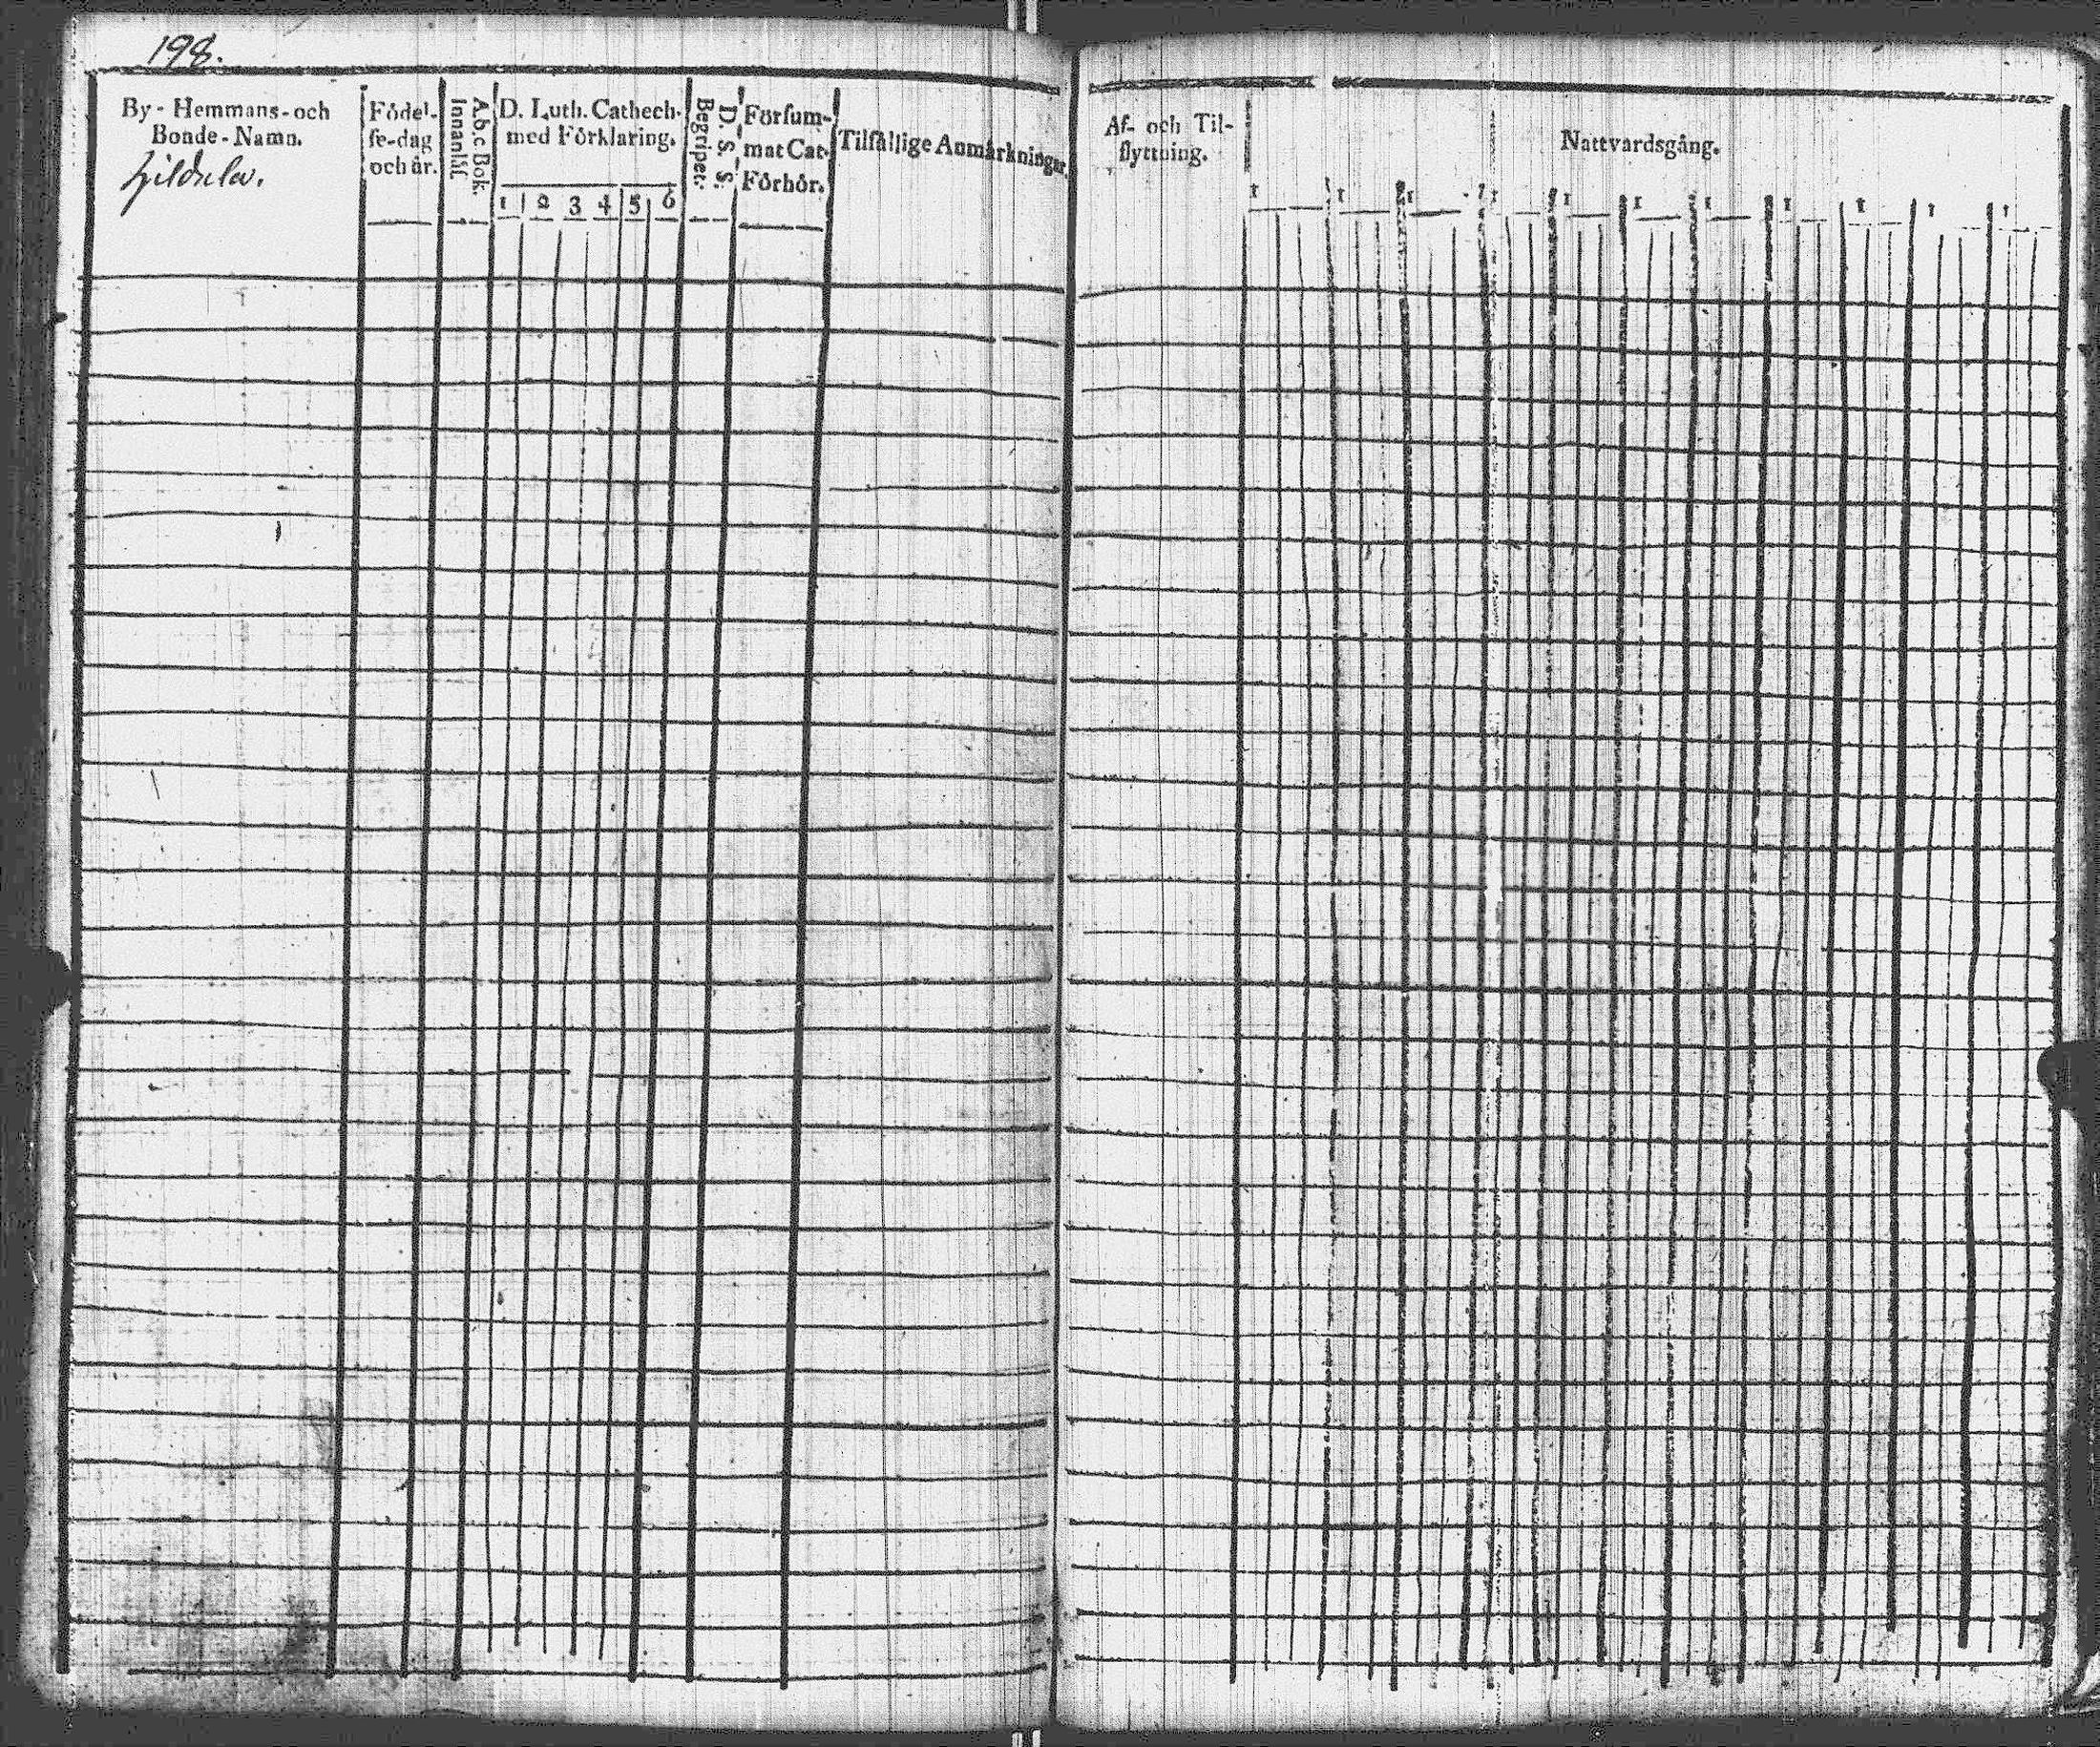 198.
By - Hemmans - och
Bonde - Namn.
Födel-
se-dag
och år.
A.b.c Bok.
Innanläs.
D. Luth. Cathech.
med Förklaring.
1 2 3 4 5 6
D. S. S.
Begripet.
Försum-
mat Cat.
Förhör.
Tilfällige Anmärkningar.
Af- och Til-
flyttning.
Nattvardsgång.
1 1 1 1 1 1 1 1 1 1 1